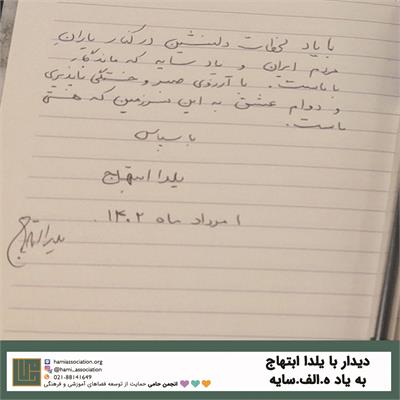 با یاد لحظات دلنشین در کنار یاران
مردم ایران و یاد سایه که ماندگار
با ماست. با آرزوی صبر و خستگی ناپذیری
و دوام عشق به این سرزمین که هستی
ماست.
با سپاس
یلدا ابتهاج
۱ مرداد ماه ۱۴۰۲
یلدا ابتهاج
دیدار با یلدا ابتهاج
به یاد ه.الف.سایه
hamiassociation.org
@hami_association
021-88141649
انجمن حامی حمایت از توسعه فضاهای آموزشی و فرهنگی